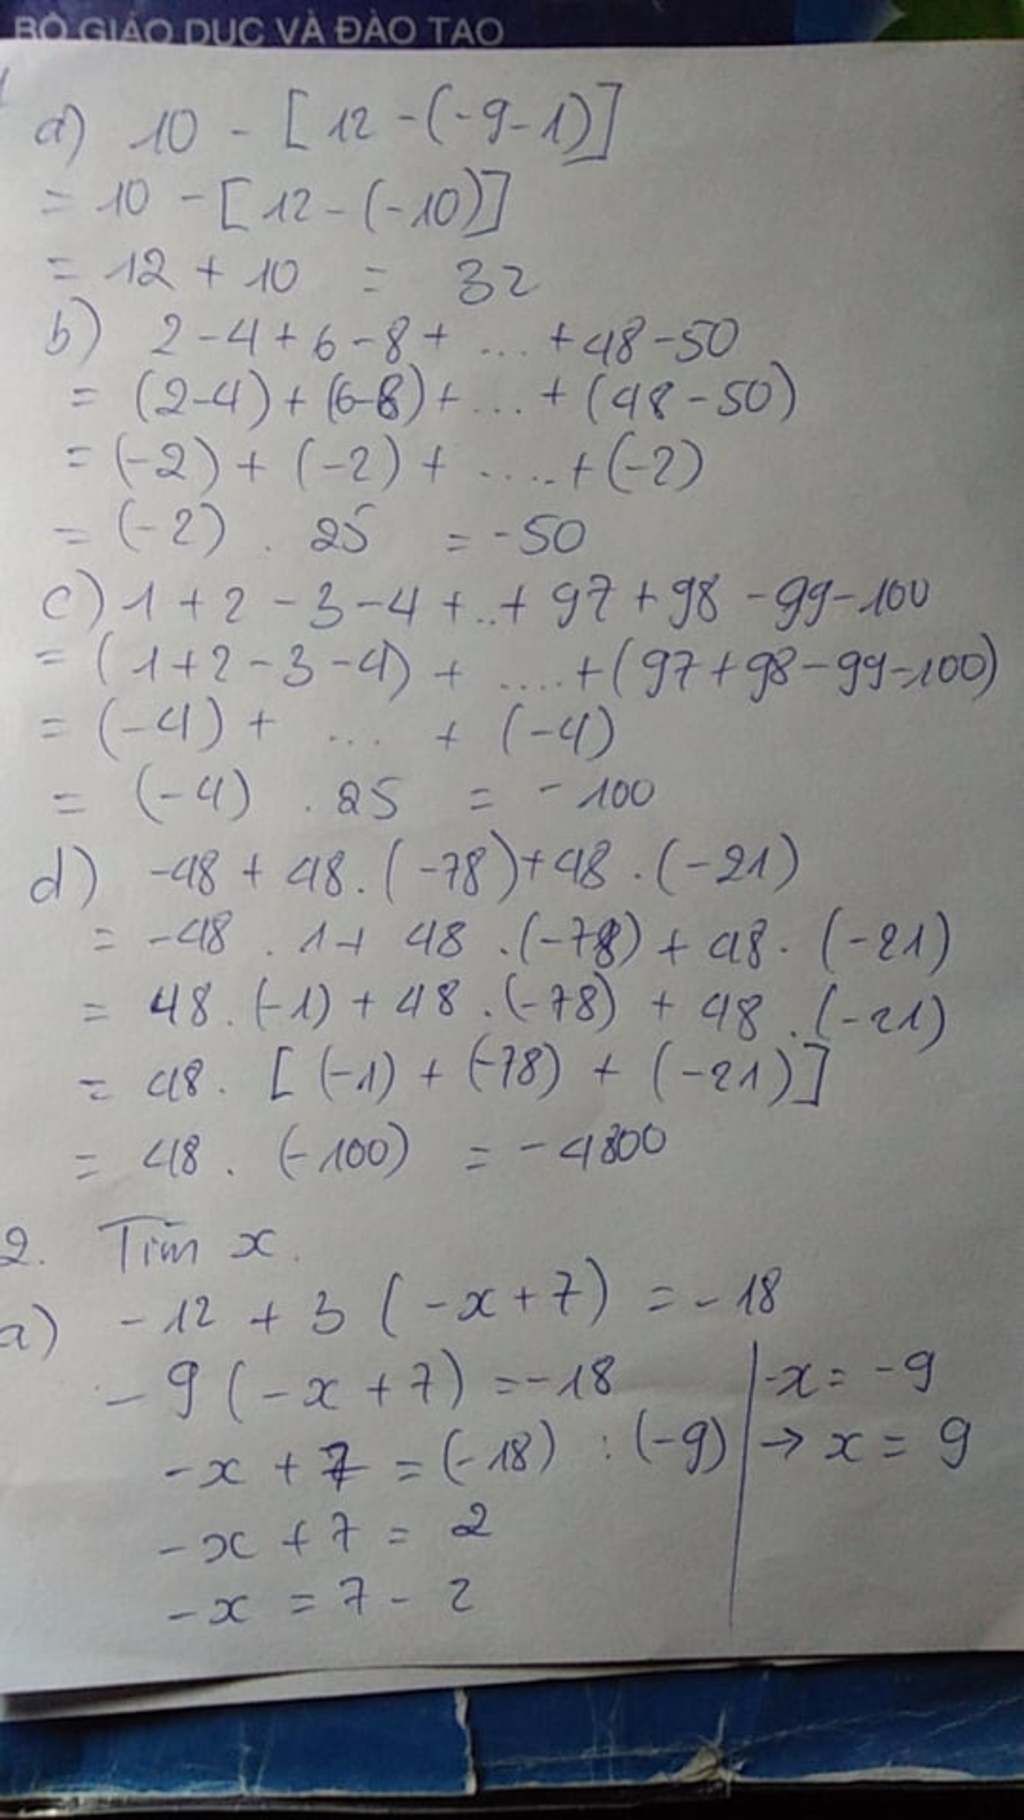 BỘ GIÁO DỤC VÀ ĐÀO TẠO
a) 10 - [12 - (-9 - 1)]
= 10 - [12 - (-10)]
= 12 + 10 = 32
b) 2 - 4 + 6 - 8 + ... + 48 - 50
= (2-4) + (6-8) + ... + (48 - 50)
= (-2) + (-2) + ..... + (-2)
= (-2) . 25 = -50
c) 1 + 2 - 3 - 4 + .. + 97 + 98 - 99 - 100
= (1 + 2 - 3 - 4) + ..... + (97 + 98 - 99 - 100)
= (-4) + ... + (-4)
= (-4) . 25 = -100
d) -48 + 48 . (-78) + 48 . (-21)
= -48 . 1 + 48 . (-78) + 48 . (-21)
= 48 . (-1) + 48 . (-78) + 48 . (-21)
= 48 . [(-1) + (-78) + (-21)]
= 48 . (-100) = -4800
2. Tìm x.
a) -12 + 3 (-x + 7) = -18
-9 (-x + 7) = -18
-x + 7 = (-18) : (-9)
-x + 7 = 2
-x = 7 - 2
-x = -9
→ x = 9